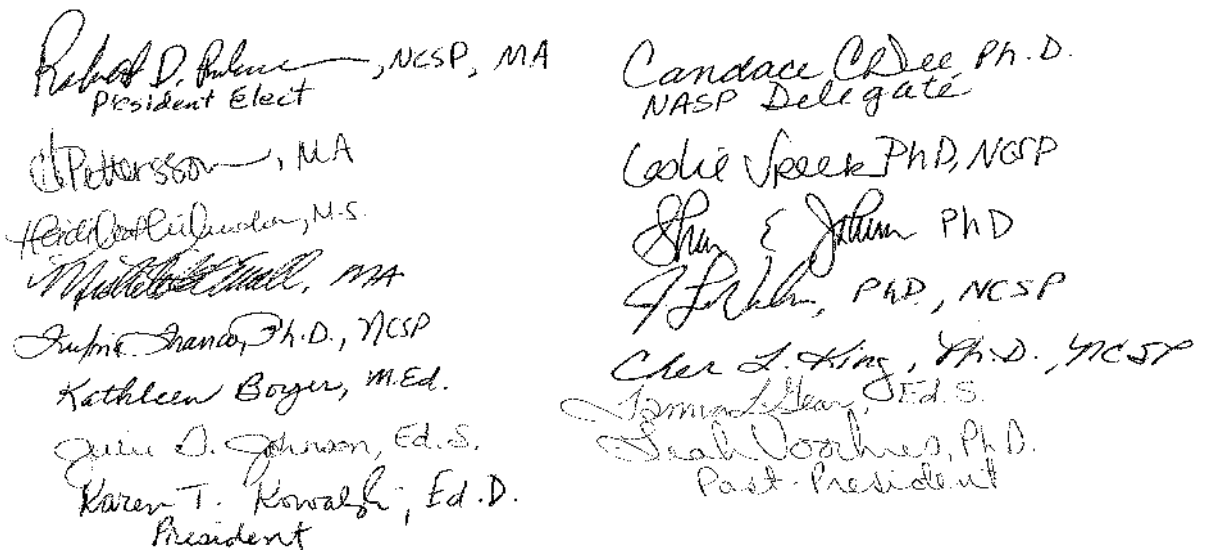 Robert D. , NCSP, MA
President Elect
Pettersson, MA
Heidi , M.S.
, MA
Franco, Ph.D., NCSP
Kathleen Boyer, M.Ed.
Julie D. Johnson, Ed.S.
Karen T. Kowalski, Ed.D.
President
Candace Dee Ph.D.
NASP Delegate
Leslie Speer PhD, NCSP
E Johnson PhD
, PhD., NCSP
Cher L. King, Ph.D., NCSP
L Gear, Ed.S.
Leah Voorhies, Ph.D.
Past-President